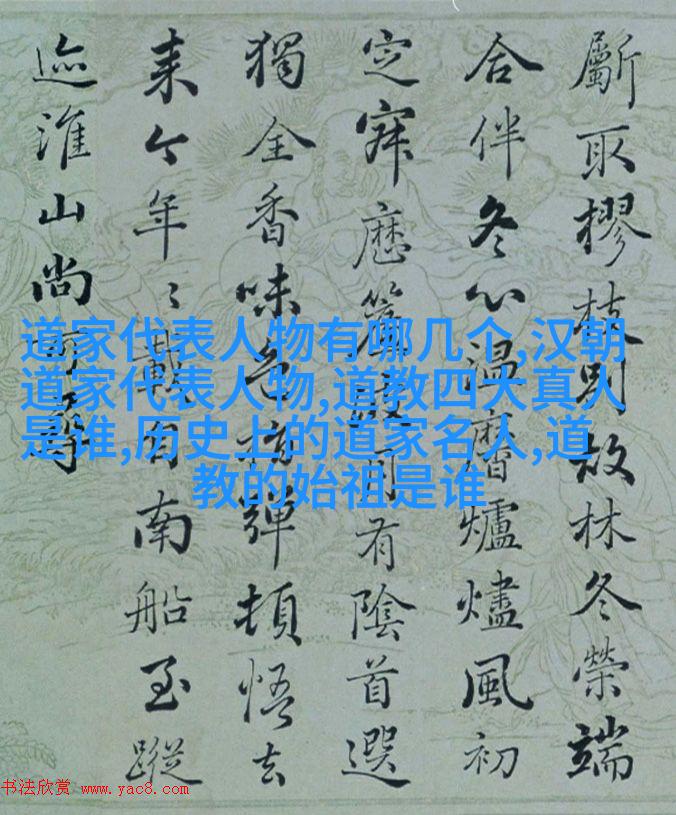 斸取樛枝別故林冬榮端
合伴冬心温麿爐燼風初
定寐歷月有陰首選
獨全香味色彈頓悟去
来今年〻載有南船至蹤
迹淮山尚可尋
道家代表人物有哪几个,汉朝
道家代表人物,道教四大真人
是谁,历史上的道家名人,道
教的始祖是谁
书法欣赏 www.yac8.com